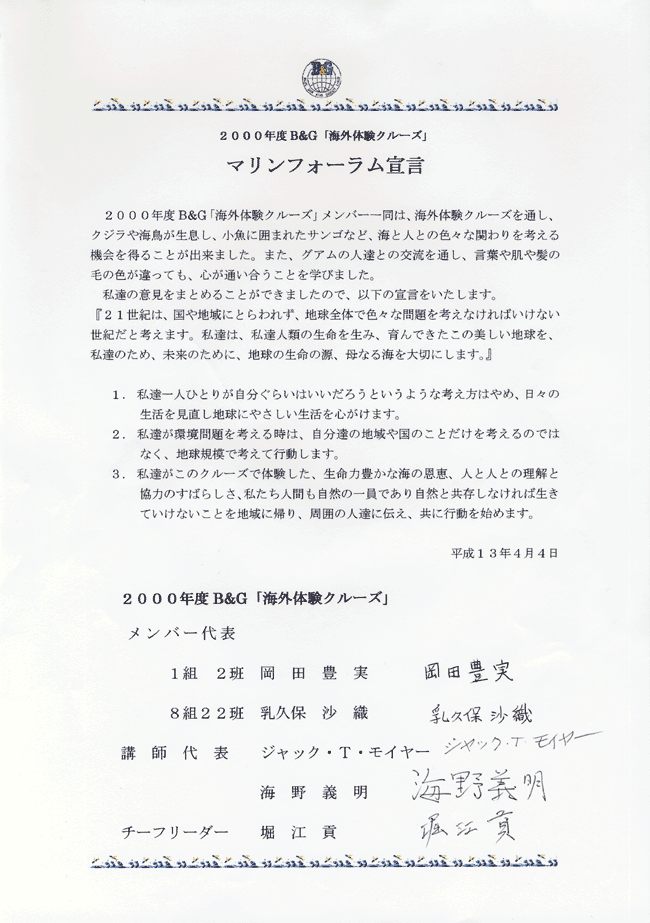 B&G
２０００年度 B&G「海外体験クルーズ」
マリンフォーラム宣言
２０００年度 B&G「海外体験クルーズ」メンバー一同は、海外体験クルーズを通し、
クジラや海鳥が生息し、小魚に囲まれたサンゴなど、海と人との色々な関わりを考える
機会を得ることが出来ました。また、グアムの人達との交流を通し、言葉や肌や髪の
毛の色が違っても、心が通い合うことを学びました。
私達の意見をまとめることができましたので、以下の宣言をいたします。
『２１世紀は、国や地域にとらわれず、地球全体で色々な問題を考えなければいけない
世紀だと考えます。私達は、私達人類の生命を生み、育んできたこの美しい地球を、
私達のため、未来のために、地球の生命の源、母なる海を大切にします。』
１．私達一人ひとりが自分ぐらいはいいだろうというような考え方はやめ、日々の
生活を見直し地球にやさしい生活を心がけます。
２．私達が環境問題を考える時は、自分達の地域や国のことだけを考えるのでは
なく、地球規模で考えて行動します。
３．私達がこのクルーズで体験した、生命力豊かな海の恩恵、人と人との理解と
協力のすばらしさ、私たち人間も自然の一員であり自然と共存しなければ生き
ていけないことを地域に帰り、周囲の人達に伝え、共に行動を始めます。
平成１３年４月４日
２０００年度 B&G「海外体験クルーズ」
メンバー代表
１組 ２班 岡田豊実 岡田豊実
８組２２班 乳久保 沙織 乳久保 沙織
講師代表 ジャック・T・モイヤー ジャック・T・モイヤー
海野義明 海野義明
チーフリーダー 堀江貢 堀江貢